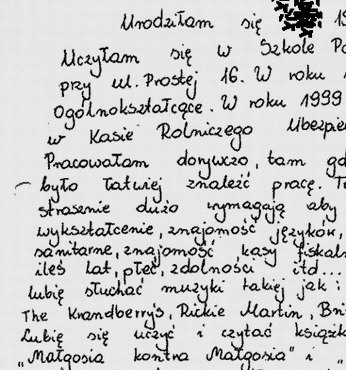 Urodziłam się 19
Uczyłam się w Szkole Po
przy ul. Prostej 16. W roku
Ogólnokształcące. W roku 1999
w Kasie Rolniczego Ubezpie
Pracowałam dorywczo, tam gd
było łatwiej znaleźć pracę. T
strasznie dużo wymagają aby
wykształcenie, znajomość języków,
sanitarne, znajomość kasy fiskaln
ileś lat, płeć, zdolności itd...
lubię słuchać muzyki takiej jak :
The Krandberry's, Rickie Martin, Bri
Lubię się uczyć i czytać książk
„Małgosia kontra Małgosia" i „